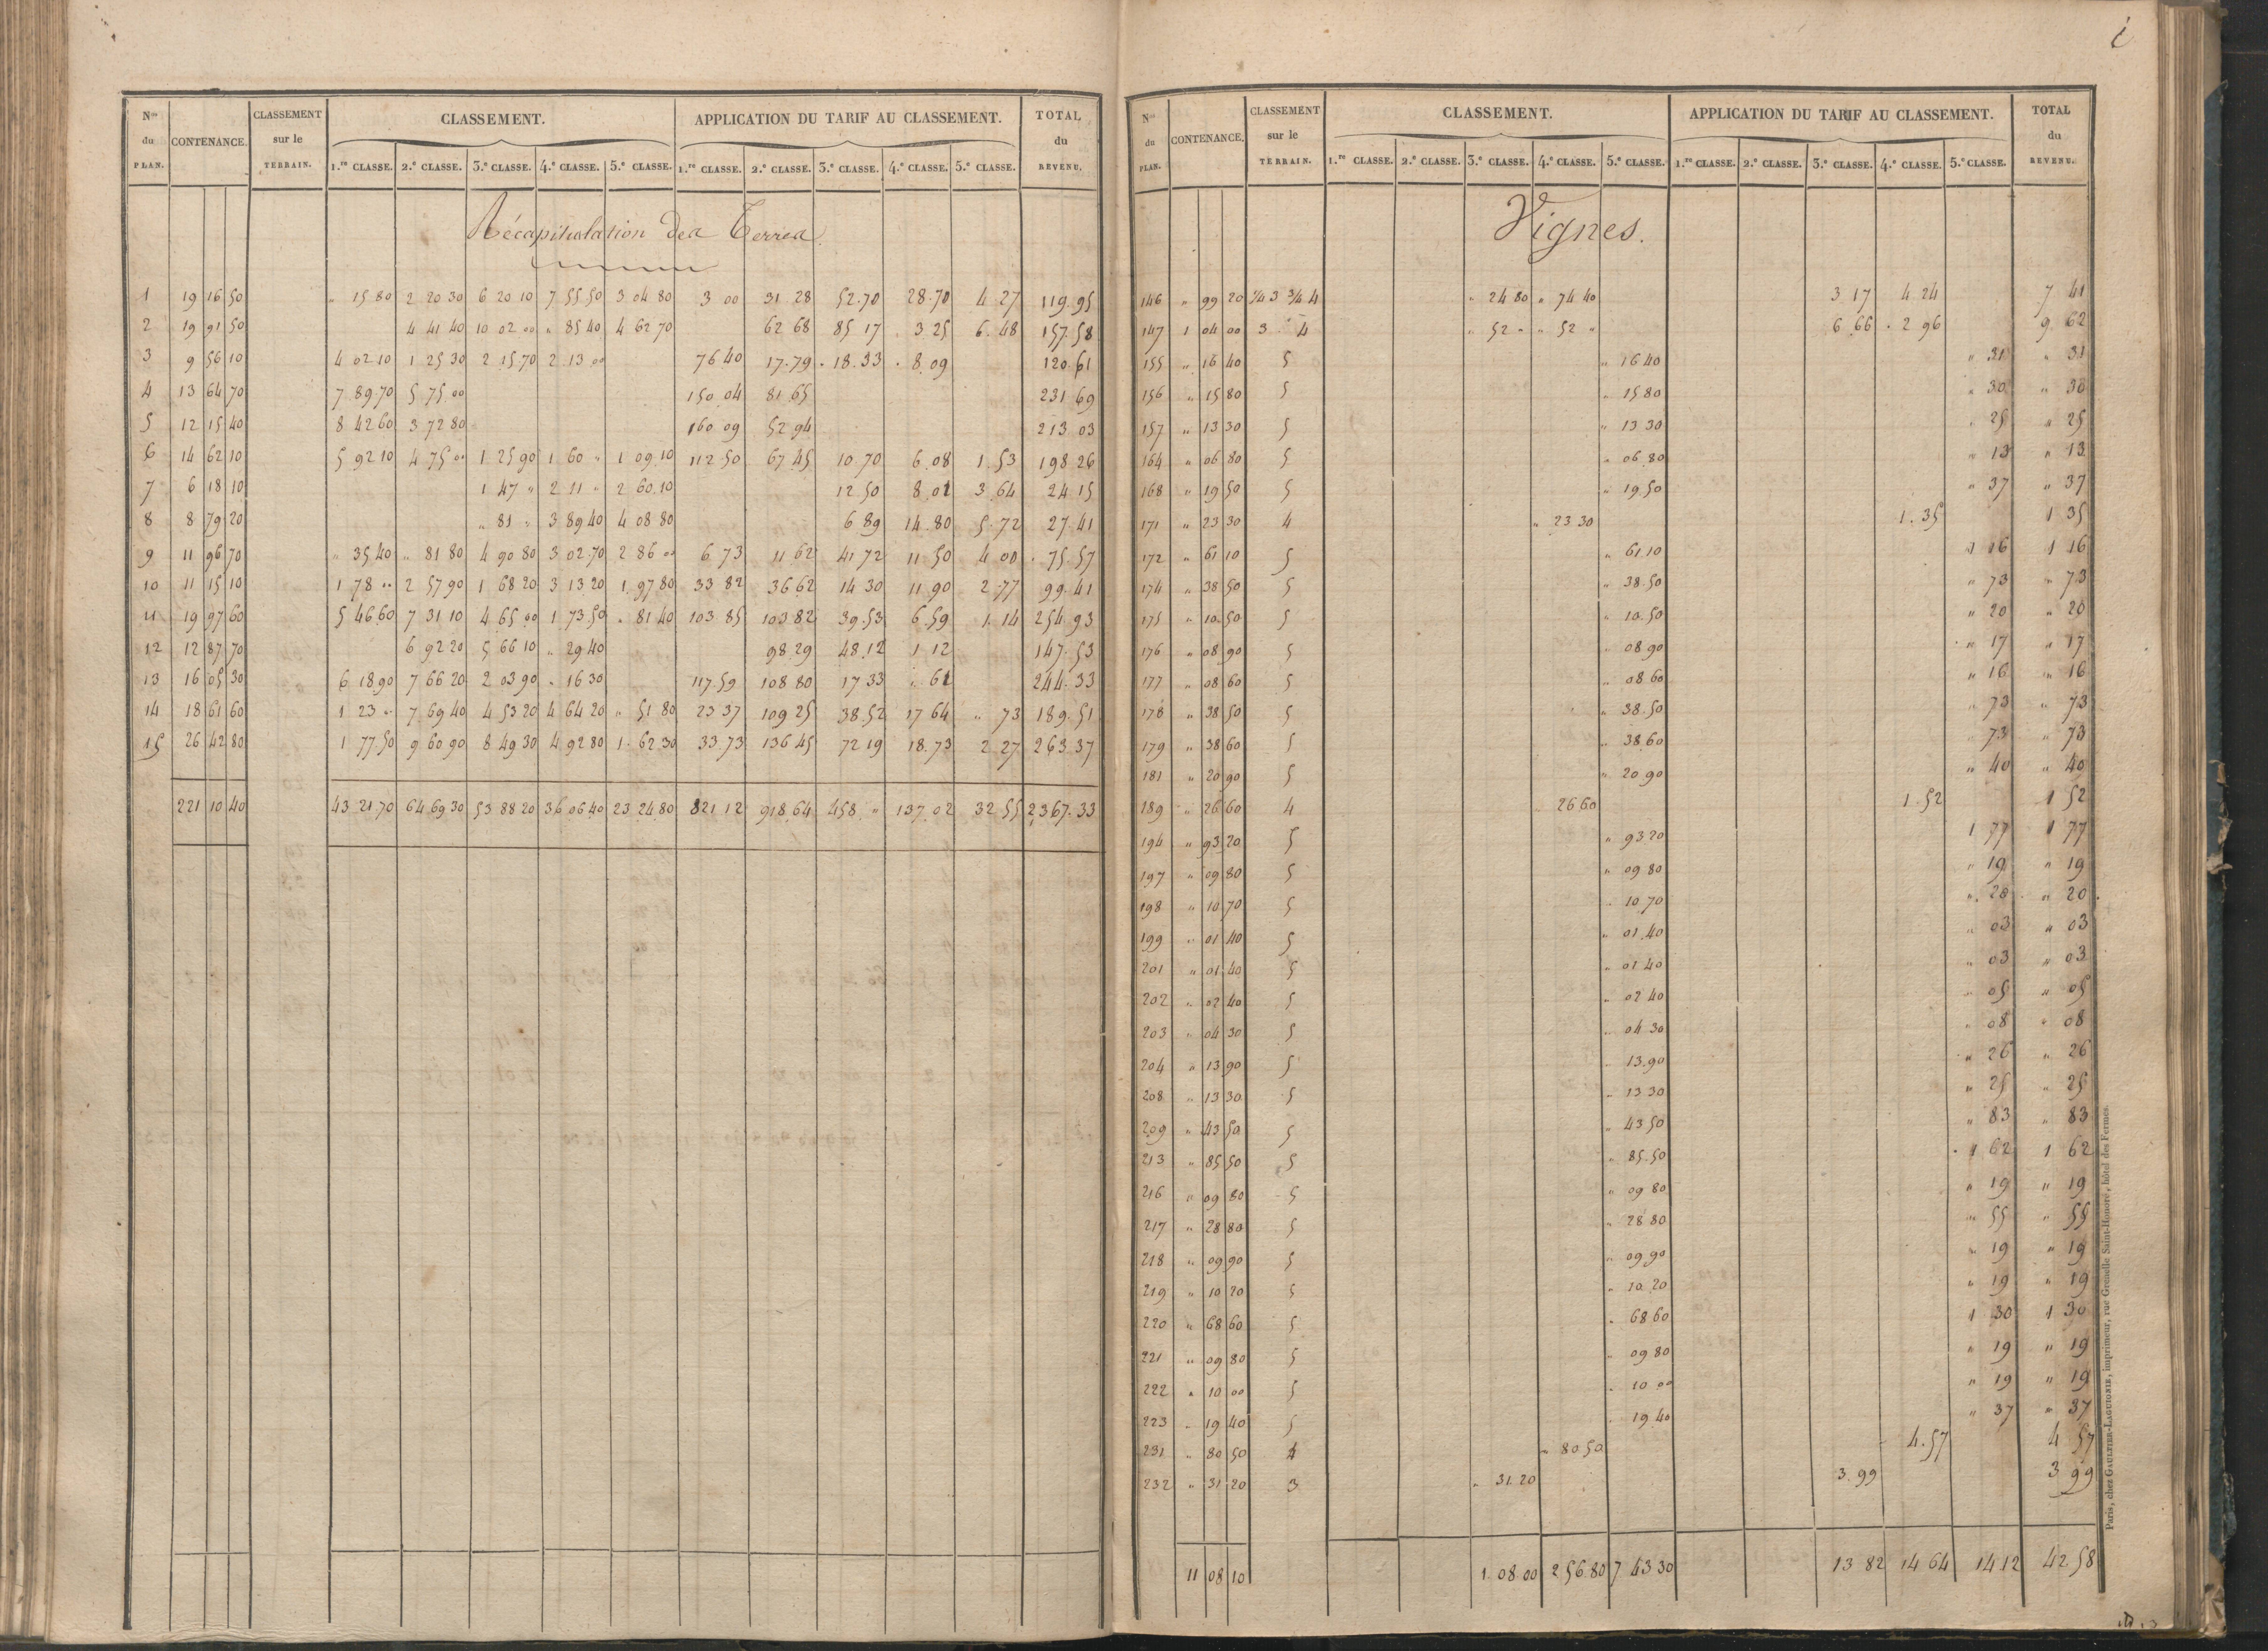 N.os du PLAN. CONTENANCE. CLASSEMENT sur le TERRAIN. CLASSEMENT. APPLICATION DU TARIF AU CLASSEMENT. TOTAL du REVENU.
1.re CLASSE. 2.e CLASSE. 3.e CLASSE. 4.e CLASSE. 5.e CLASSE. 1.re CLASSE. 2.e CLASSE. 3.e CLASSE. 4.e CLASSE. 5.e CLASSE.
Récapitulation des Terres.
1 19 16 50 " 15 80 2 20 30 6 20 10 7 55 50 3 04 80 3 00 31 28 52.70 28.70 4 27 119.95
2 19 91 50 4 41 40 10 02 00 " 85 40 4 62 70 62 68 85 17 3 25 6.48 157.58
3 9 56 10 4 02 10 1 25 30 2 15 70 2 13 00 76 40 17.79 18.33 8.09 120.61
4 13 64 70 7 89 70 5 75 00 150 04 81 65 231 69
5 12 15 40 8 42 60 3 72 80 160 09 52 94 213 03
6 14 62 10 5 92 10 4 75 00 1 25 90 1 60 " 1 09 10 112 50 67.45 10.70 6.08 1.53 198 26
7 6 18 10 1 47 " 2 11 " 2 60 10 12 50 8.01 3.64 24 15
8 8 79 20 " 81 " 3 89 40 4 08 80 6 89 14.80 5.72 27.41
9 11 96 70 " 35 40 " 81 80 4 90 80 3 02 70 2 86 00 6 73 11 62 41 72 11 50 4 00 75.57
10 11 15 10 1 78 00 2 57 90 1 68 20 3 13 20 1 97 80 33 82 36 62 14 30 11 90 2.77 99.41
11 19 97 60 5 46 60 7 31 10 4 65 00 1 73 50 " 81 40 103 85 103 82 39.53 6.59 1.14 254 93
12 12 87 70 6 92 20 5 66 10 " 29 40 98.29 48.12 1 12 147.53
13 16 05 30 6 18 90 7 66 20 2 03 90 " 16 30 117.59 108 80 17 33 " 61 244.33
14 18 61 60 1 23 " 7 69 40 4 53 20 4 64 20 " 51 80 23 37 109 25 38.52 17 64 " 73 189.51
15 26 42 80 1 77 50 9 60 90 8 49 30 4 92 80 1 62 30 33.73 136 45 72 19 18.73 2 27 263.37
221 10 40 43 21 70 64 69 30 53 88 20 36 06 40 23 24 80 821 12 918.64 458 " 137.02 32 55 2367.33
N.os du PLAN. CONTENANCE. CLASSEMENT sur le TERRAIN. CLASSEMENT. APPLICATION DU TARIF AU CLASSEMENT. TOTAL du REVENU.
1.re CLASSE. 2.e CLASSE. 3.e CLASSE. 4.e CLASSE. 5.e CLASSE. 1.re CLASSE. 2.e CLASSE. 3.e CLASSE. 4.e CLASSE. 5.e CLASSE.
Vignes.
146 " 99 20 1/4 3 3/4 4 " 24 80 " 74 40 3 17 4 24 7 41
147 1 04 00 3 4 " 52 " " 52 " 6 66 2 96 9 62
155 " 16 40 5 " 16 40 " 31 " 31
156 " 15 80 5 " 15 80 " 30 " 30
157 " 13 30 5 " 13 30 " 25 " 25
164 " 06 80 5 " 06 80 " 13 " 13
168 " 19 50 5 " 19 50 " 37 " 37
171 " 23 30 4 " 23 30 1.35 1 35
172 " 61 10 5 " 61 10 1 16 1 16
174 " 38 50 5 " 38 50 " 73 " 73
175 " 10 50 5 " 10 50 " 20 " 20
176 " 08 90 5 " 08 90 " 17 " 17
177 " 08 60 5 " 08 60 " 16 " 16
178 " 38 50 5 " 38 50 " 73 " 73
179 " 38 60 5 " 38 60 " 73 " 73
181 " 20 90 5 " 20 90 " 40 " 40
189 " 26 60 4 26 60 1.52 1 52
194 " 93 20 5 " 93 20 1 77 1 77
197 " 09 80 5 " 09 80 " 19 " 19
198 " 10 70 5 " 10 70 " 20 " 20
199 " 01 40 5 " 01 40 " 03 " 03
201 " 01 40 5 " 01 40 " 03 " 03
202 " 02 40 5 " 02 40 " 05 " 05
203 " 04 30 5 " 04 30 " 08 " 08
204 " 13 90 5 " 13.90 " 26 " 26
208 " 13 30 5 " 13 30 " 25 " 25
209 " 43 50 5 " 43 50 " 83 " 83
213 " 85 50 5 " 85.50 1 62 1 62
216 " 09 80 5 " 09 80 " 19 " 19
217 " 28 80 5 " 28 80 " 55 " 55
218 " 09 90 5 " 09.90 " 19 " 19
219 " 10 20 5 " 10 20 " 19 " 19
220 " 68 60 5 " 68 60 1 30 1 30
221 " 09 80 5 " 09 80 " 19 " 19
222 " 10 00 5 " 10 00 " 19 " 19
223 " 19 40 5 " 19 40 " 37 " 37
231 " 80 50 4 " 80 50 4.57 4 57
232 " 31 20 3 " 31.20 3.99 3 99
11 08 10 1.08.00 2 56.80 7 43 30 13 82 14 64 14 12 42.58
Paris, chez GAULTIER-LAGUIONIE, imprimeur, rue Grenelle Saint-Honoré, hôtel des Fermes.